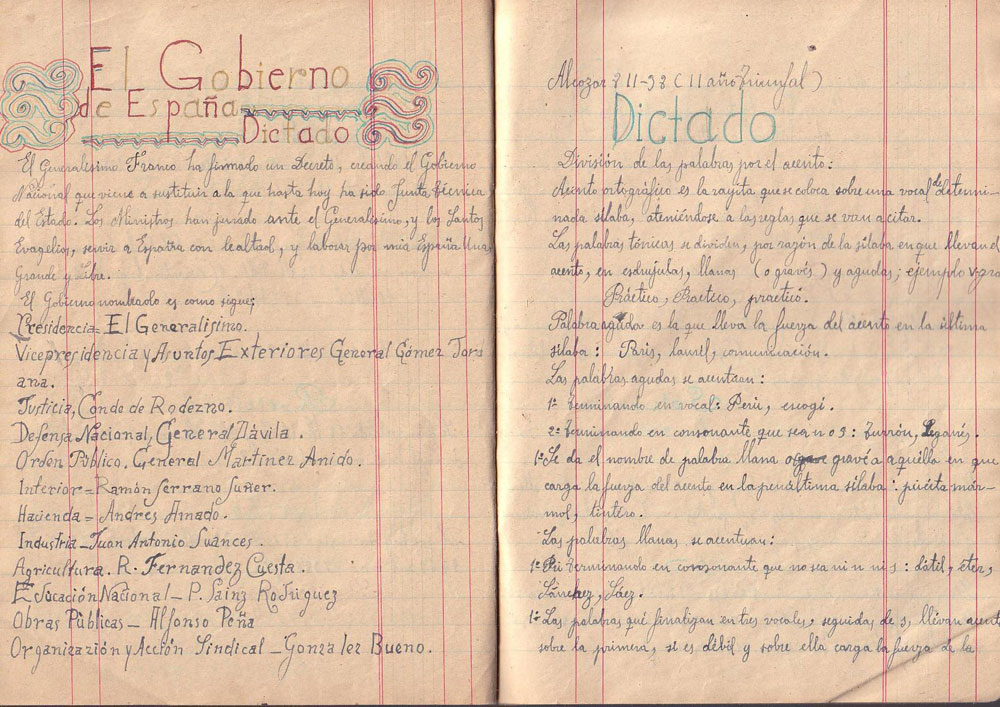 El Gobierno
de España
Dictado
El Generalisimo Franco ha firmado un Decreto, creando el Gobierno
Nacional que viene a sustituir a la que hasta hoy ha sido Junta técnica
del Estado. Los Ministros han jurado ante el Generalisimo, y los Santos
Evangelios, servir a España con lealtad, y laborar por una España Una
Grande y Libre.
El Gobierno nombrado es como sigue;
Presidencia- El Generalisimo.
Vicepresidencia y Asuntos Exteriores General Gómez Jord
ana.
Justicia, Conde de Rodezno.
Defensa Nacional, General Dávila.
Orden Público. General Martinez Anido.
Interior= Ramón Serrano Suñer.
Hacienda= Andrés Amado.
Industria_Juan Antonio Suances.
Agricultura. R. Fernandez Cuesta.
Educación Nacional_ P. Sáinz Rodriguez
Obras Públicas_ Alfonso Peña
Organización y Acción Sindical_Gonzalez Bueno.
Alcozar 8 II-98 (II año Triunfal)
Dictado
División de las palabras por el acento:
Acento ortográfico es la rayita que se coloca sobre una vocal de determi-
nada silaba, ateniéndose a las reglas que se van a citar.
Las palabras tónicas se dividen, por razón de la silaba en que llevan el
acento, en esdrujulas, llanas (o graves) y agudas; ejemplo
Práctico, Practico, practicó.
Palabra aguda es la que lleva la fuerza del acento en la última
silaba: Paris, laurel, comunicación.
Las palabras agudas se acentuan:
1º terminando en vocal: Perú, escogi.
2º terminando en consonante que sea n o s: turrón, Leganés.
1º Se da el nombre de palabra llana o grave a aquella en que
carga la fuerza del acento en la penúltima silaba: pisita már-
mol, tintero.
Las palabras llanas se acentuan:
1º terminando en consonante que no sea ni n ni s: dátil, éter,
Sánchez, Sáez.
1º Las palabras qué finalizan en tres vocales, seguidas de s, llevan acento
sobre la primera, si es débil y sobre ella carga la fuerza de la